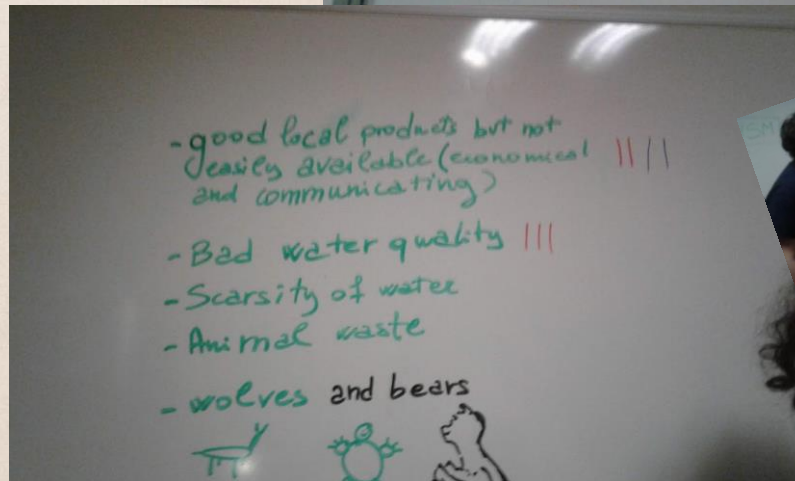 - good local products but not
easily available (economical
and communicating)
- Bad water quality
- Scarsity of water
- Animal waste
- wolves and bears